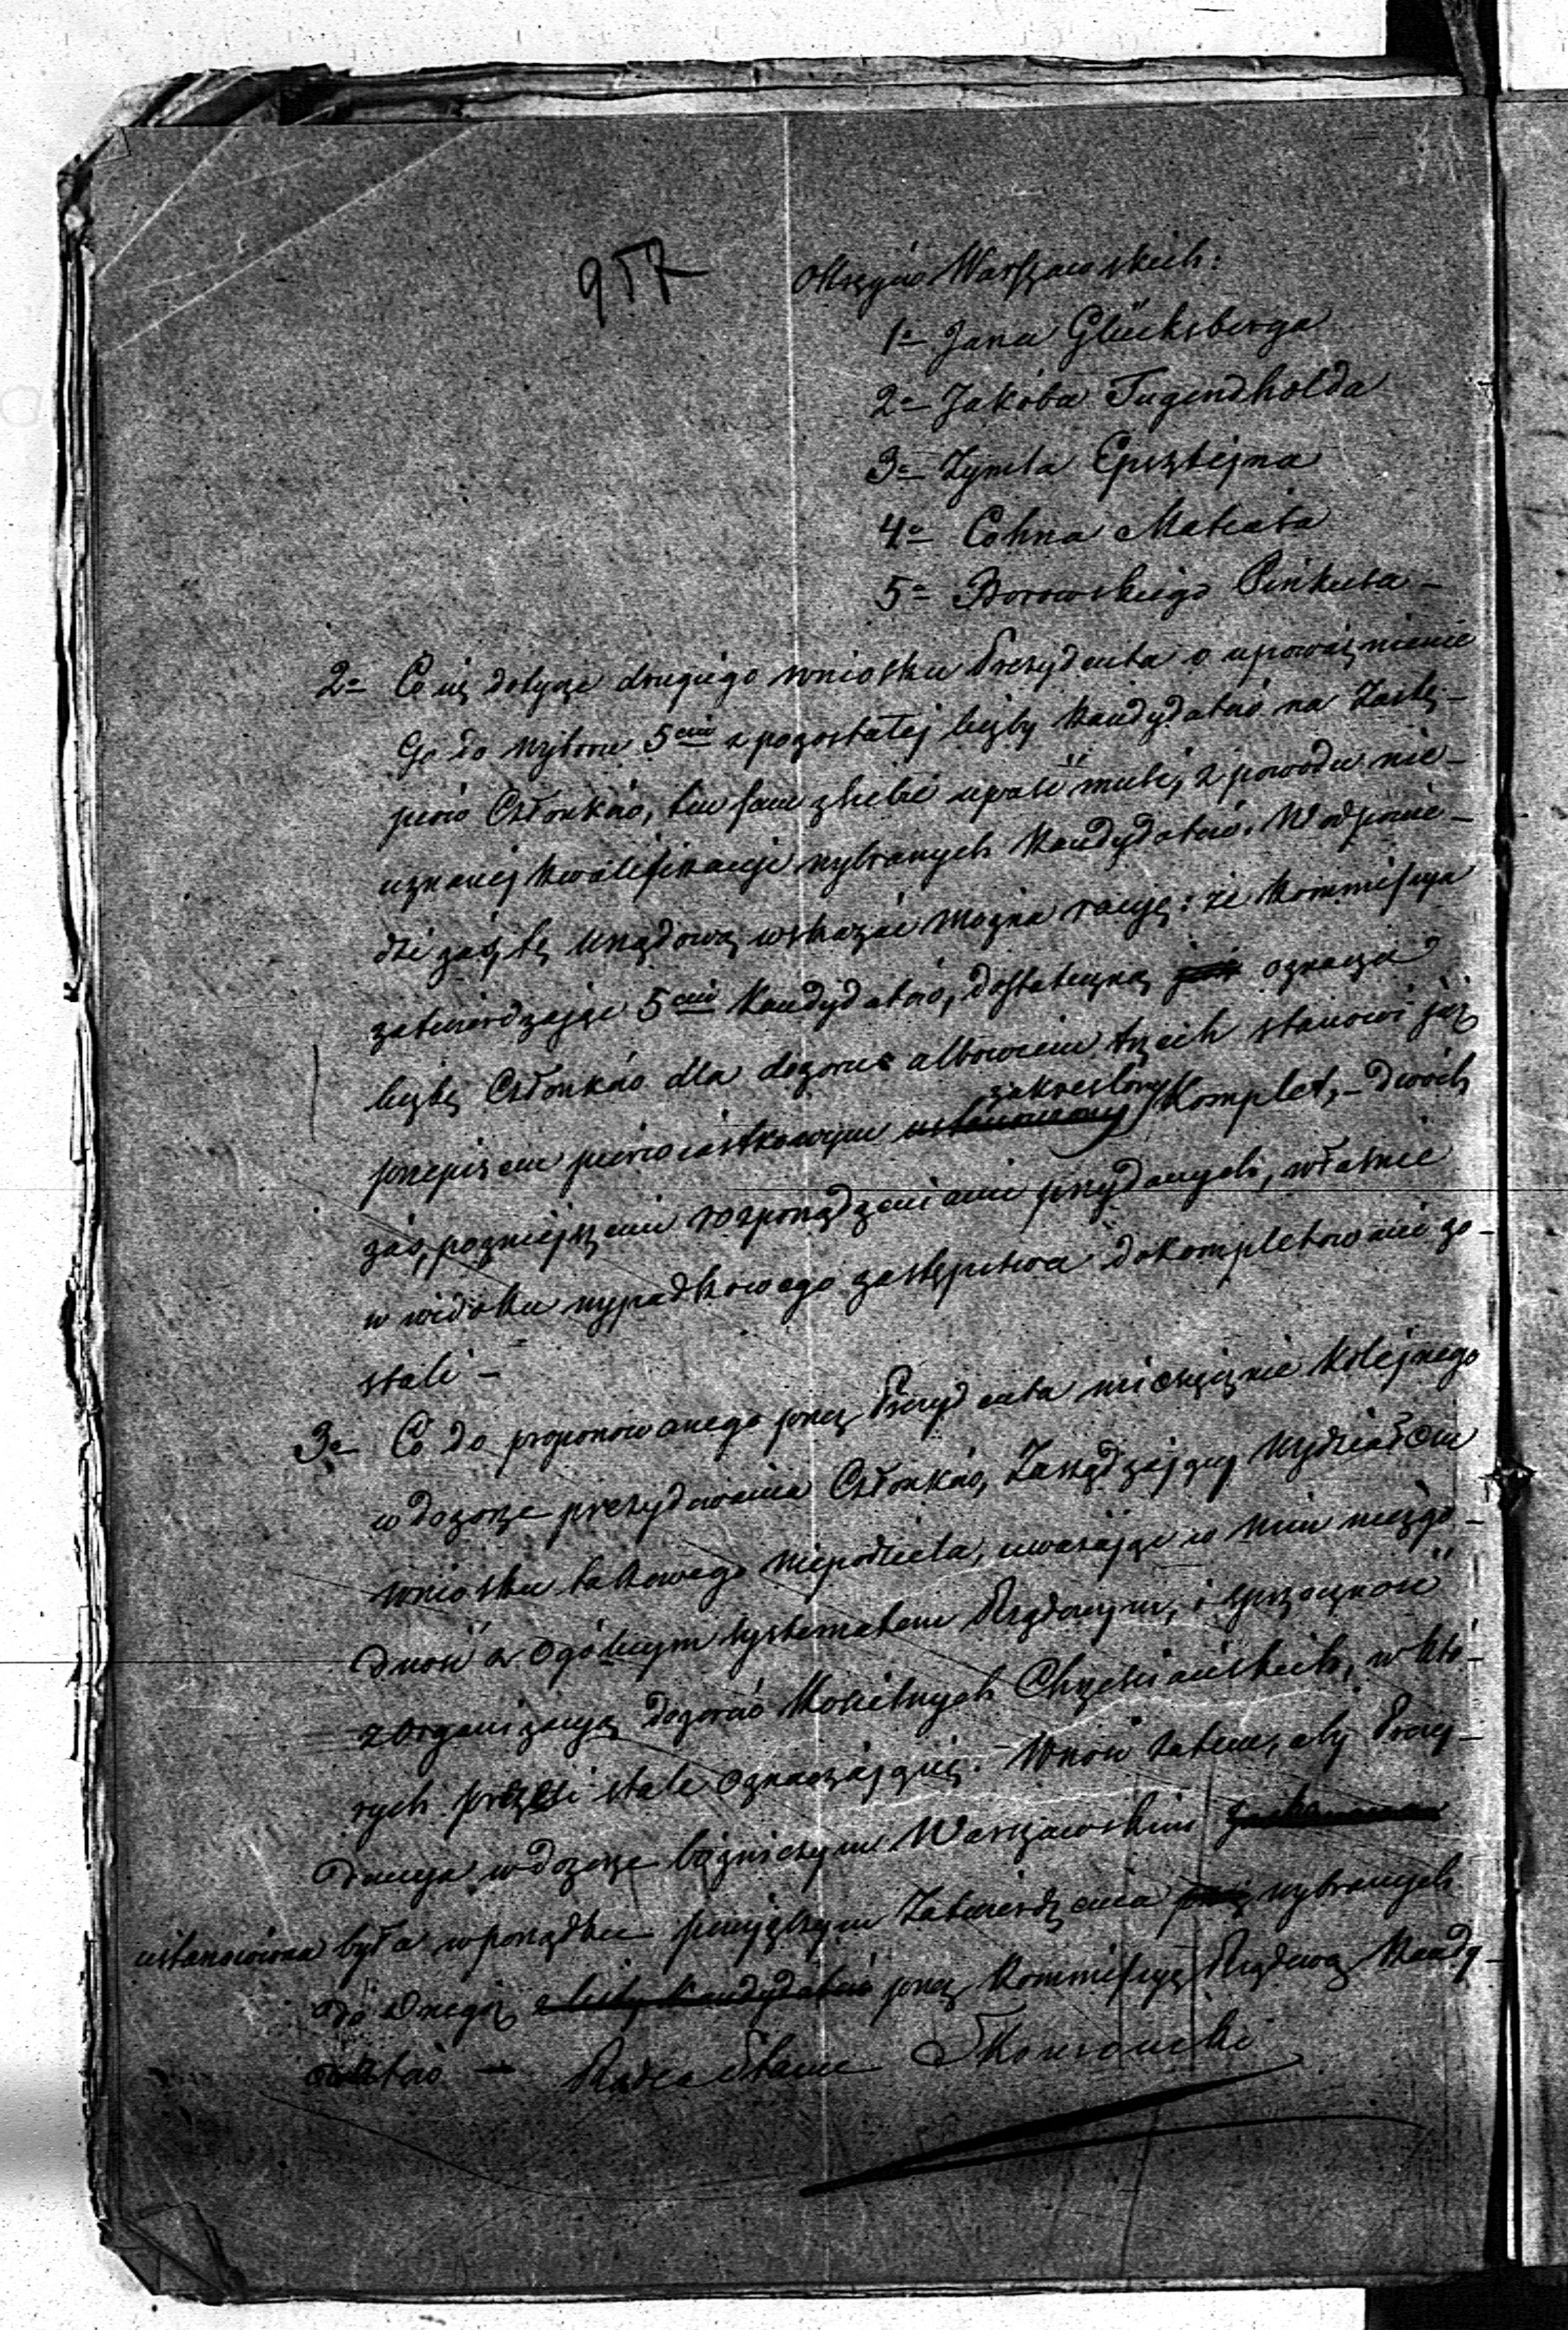 957
Okręgów Warszawskich:
1o Jana Glücksberga
2o Jakóba Tugendholda
3o Zymla Epsztejna
4o Cohna Matiata
5o Borowskiego Pinkusa
2o Co się dotycze drugiego wniosku Prezydenta o upoważnienie
Go do wyboru 5ciu z pozostałej liczby Kandydatów na Zastę-
pców Członków, ten sam z siebie upaść musi, z powodu nie-
uznanej kwalifikacyi wybranych Kandydatów. W odpowie-
dzi zaś, tę urzędową wskazać można racyę: że Kommissya
zatwierdzając 5ciu Kandydatów, dostateczną oznacza
liczbę Członków dla dozoru albowiem trzech stanowi już
zakreślony
przepisem pierwiastkowym ustanowiony Komplet, - dwóch
zaś, pozniejszemi rozporządzeniami przydanych, właśnie
w widoku wypadkowego zastępstwa dokompletowani zo-
stali -
3o Co do proponowanego przez Prezydenta miesięcznie kolejnego
w dozorze prezydowania Członków, Zarządzający Wydziałem
wniosku takowego niepodziela, uważając w nim niezgo-
dność z ogólnym systematem Rządowym, i sprzeczność
z organizacyą dozorów Kościelnych Chrześciańskich, w któ-
rych prezesi stale oznaczają się. Wnosi zatem, aby Prezy-
dencya w dozorze bóżniczym Warszawskim
ustanowiona była w porządku powyższym Zatwierdzenia wybranych
do Onegoż z listy Kandydatów przez Kommissyę Rządową Kandy-
datów - Radca Stanu